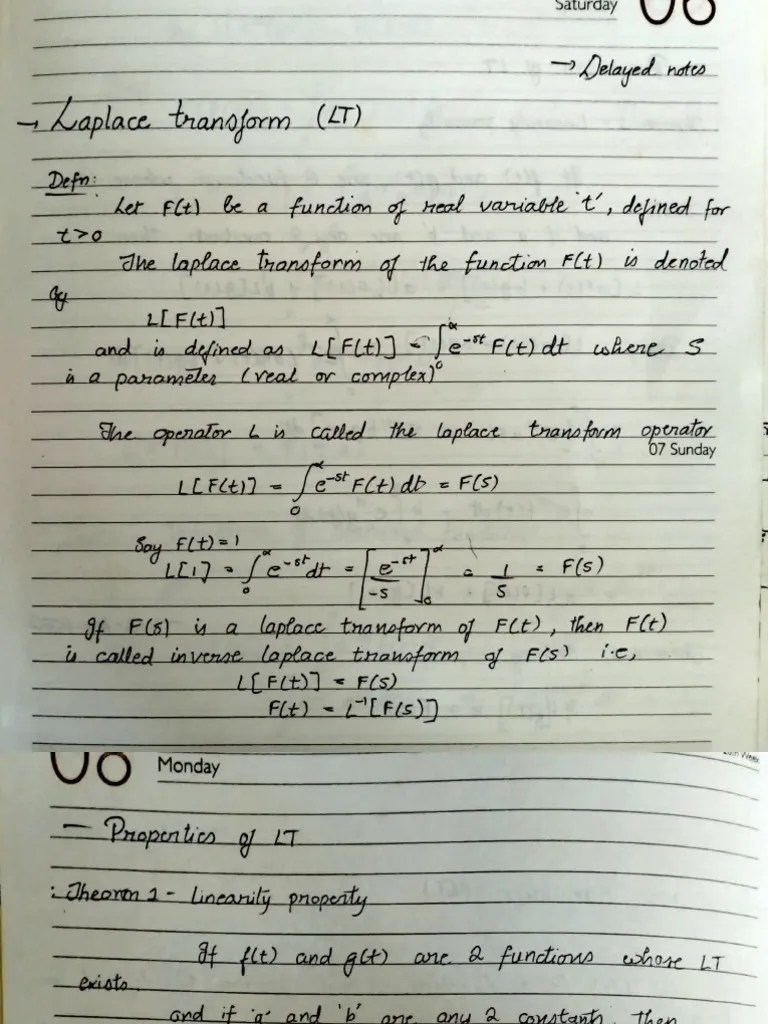 Saturday 06
→ Delayed notes
→ Laplace transform (LT)
Defn:
Let F(t) be a function of real variable 't', defined for
t>0
The laplace transform of the function F(t) is denoted
by
L[F(t)]
and is defined as L[F(t)] = ∫₀^∝ e^-st F(t) dt where S
is a parameter (real or complex)
The operator L is called the laplace transform operator
07 Sunday
L[F(t)] = ∫₀^∝ e^-st F(t) dt = F(s)
Say F(t)=1
L[1] = ∫₀^∝ e^-st dt = [e^-st / -s]₀^∝ = 1/s = F(s)
If F(s) is a laplace transform of F(t), then F(t)
is called inverse laplace transform of F(s) i.e,
L[F(t)] = F(s)
F(t) = L⁻¹[F(s)]
08 Monday
— Properties of LT
: Theorem 1 - Linearity property
If f(t) and g(t) are 2 functions whose LT
exists.
and if 'a' and 'b' are any 2 constants, then